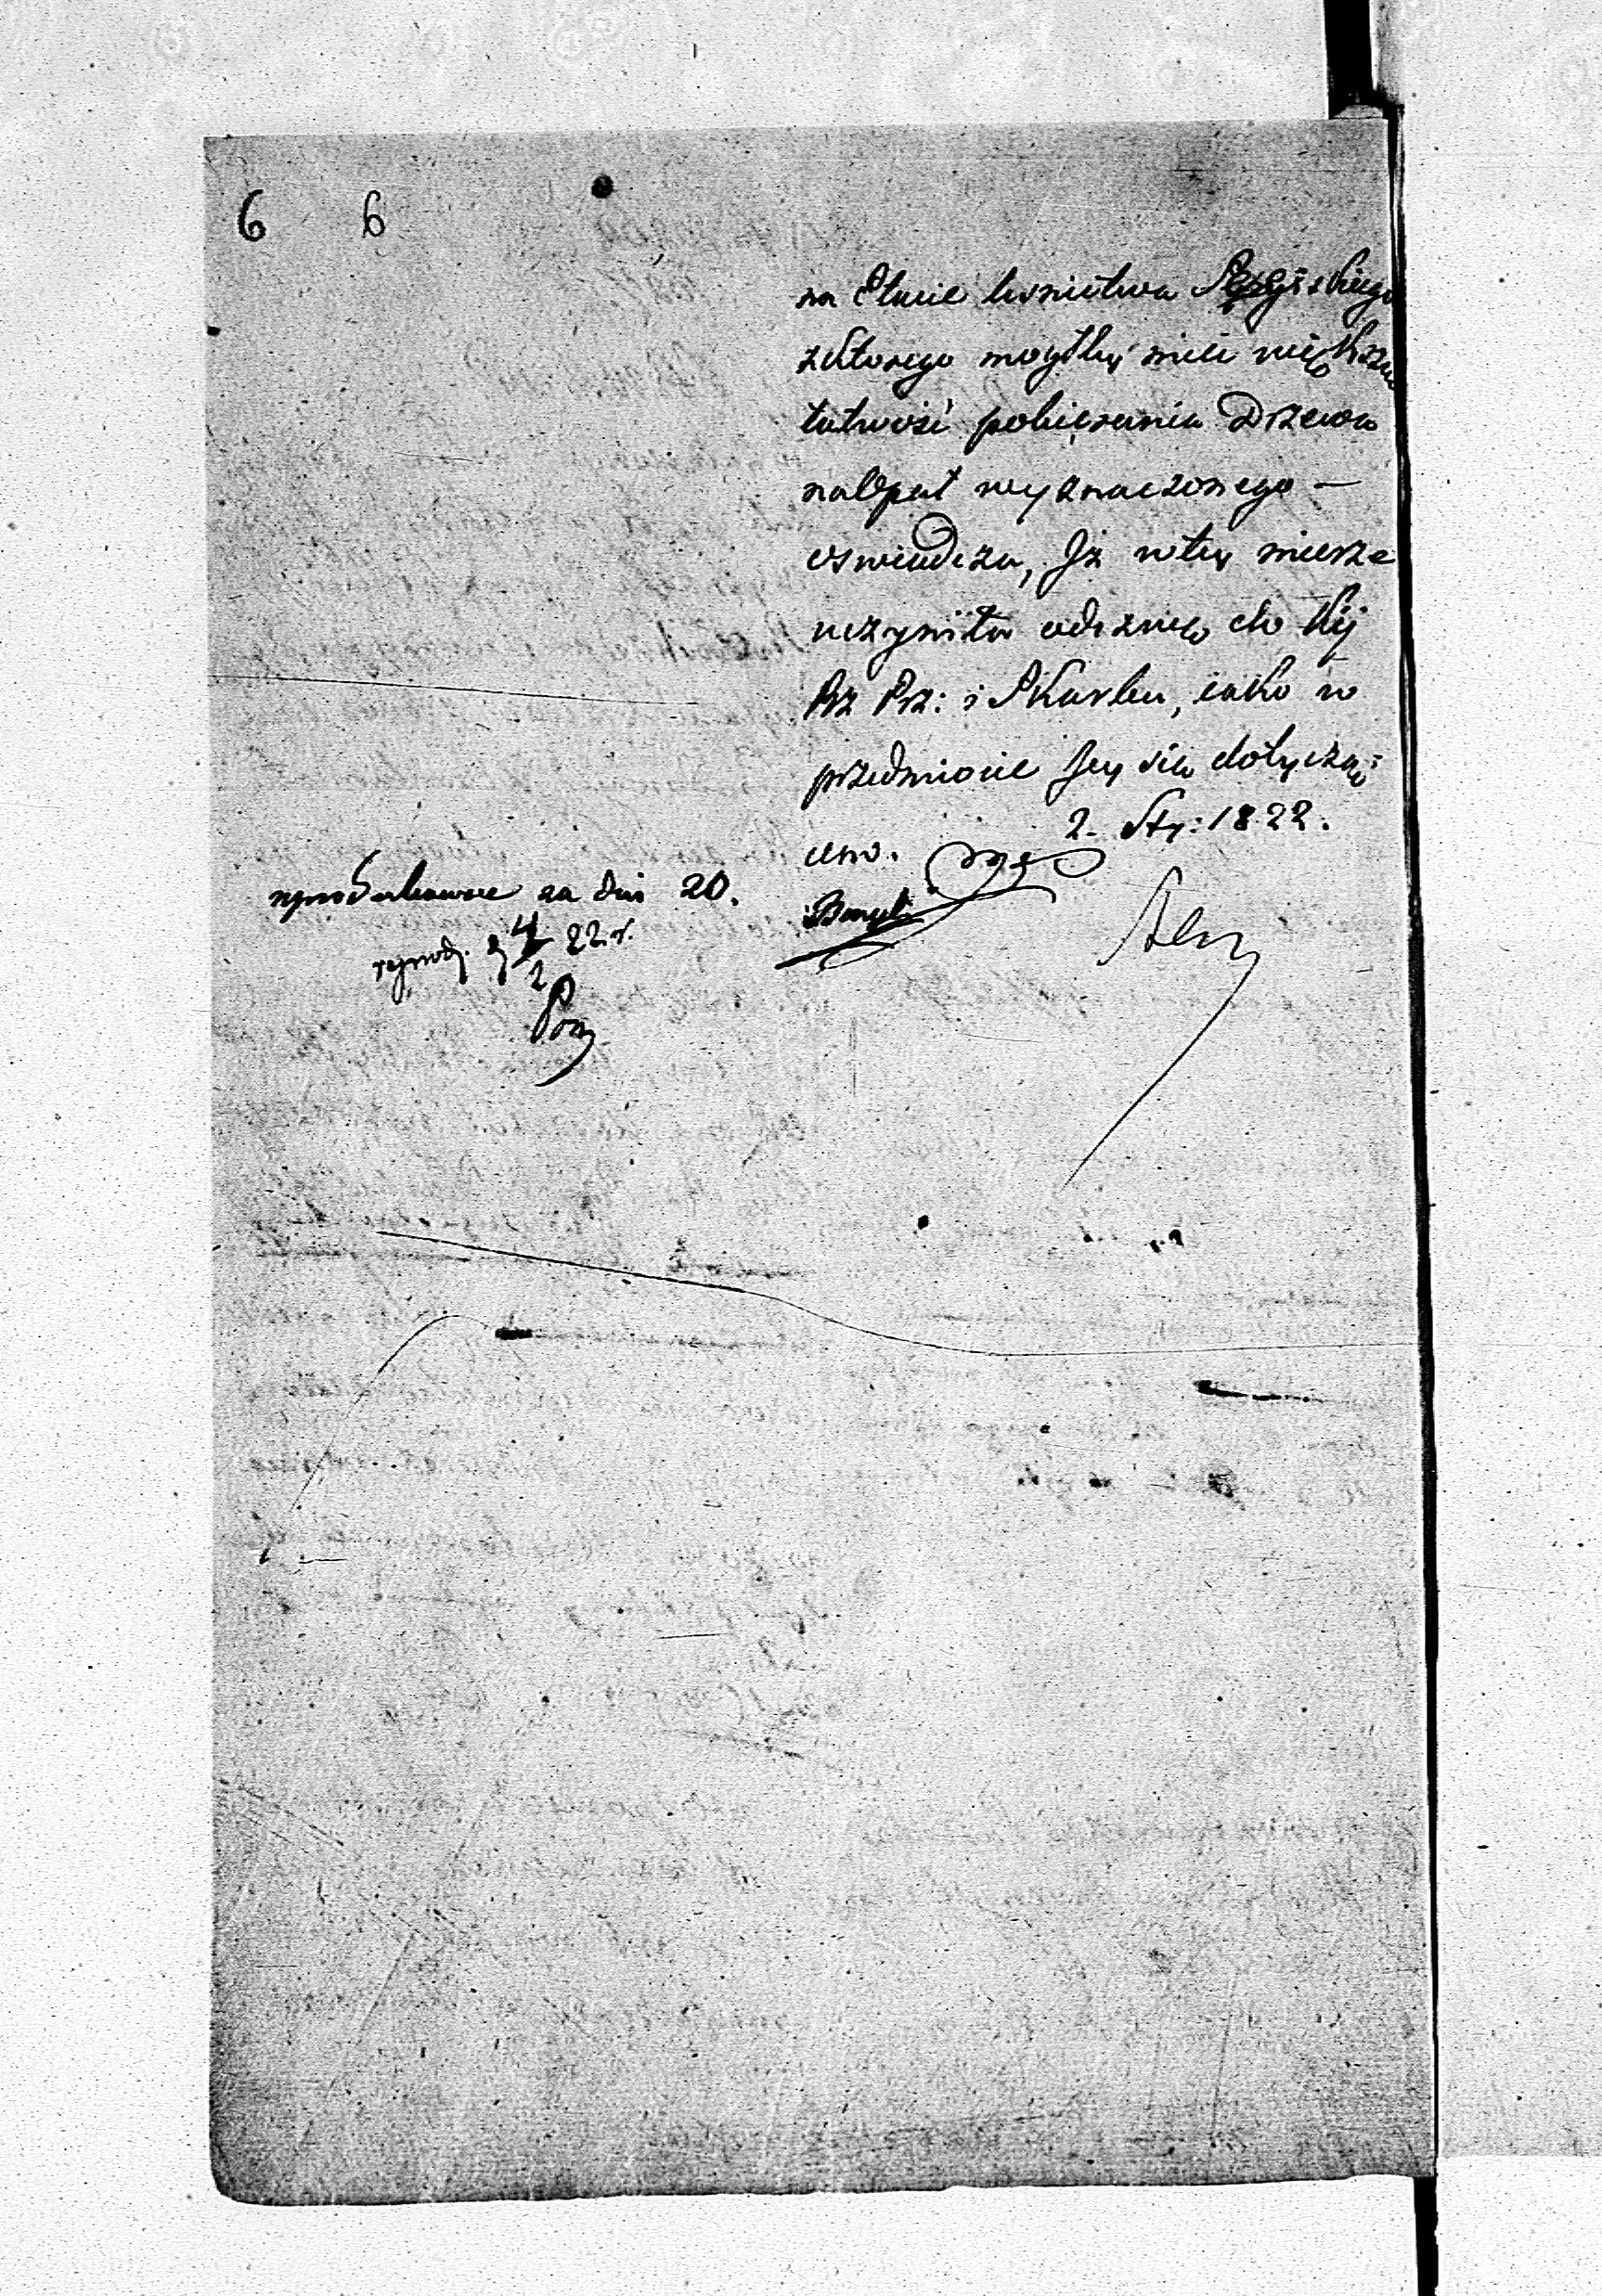 6 6
na Etacie Lesnictwa
z którego mogłby mieć większą
łatwość pobierania Drzewa
na Opał wyznaczonego —
oswiadcza, Jż w tey mierze
uczyniła odeznę do Kij
Rz Prz: i Skarbu, iako w
przedmiocie Jey się dotyczą=
cem.
2. Sty: 1822.
reprodukować za dni 20.
reprod. d 4/2 22 r.